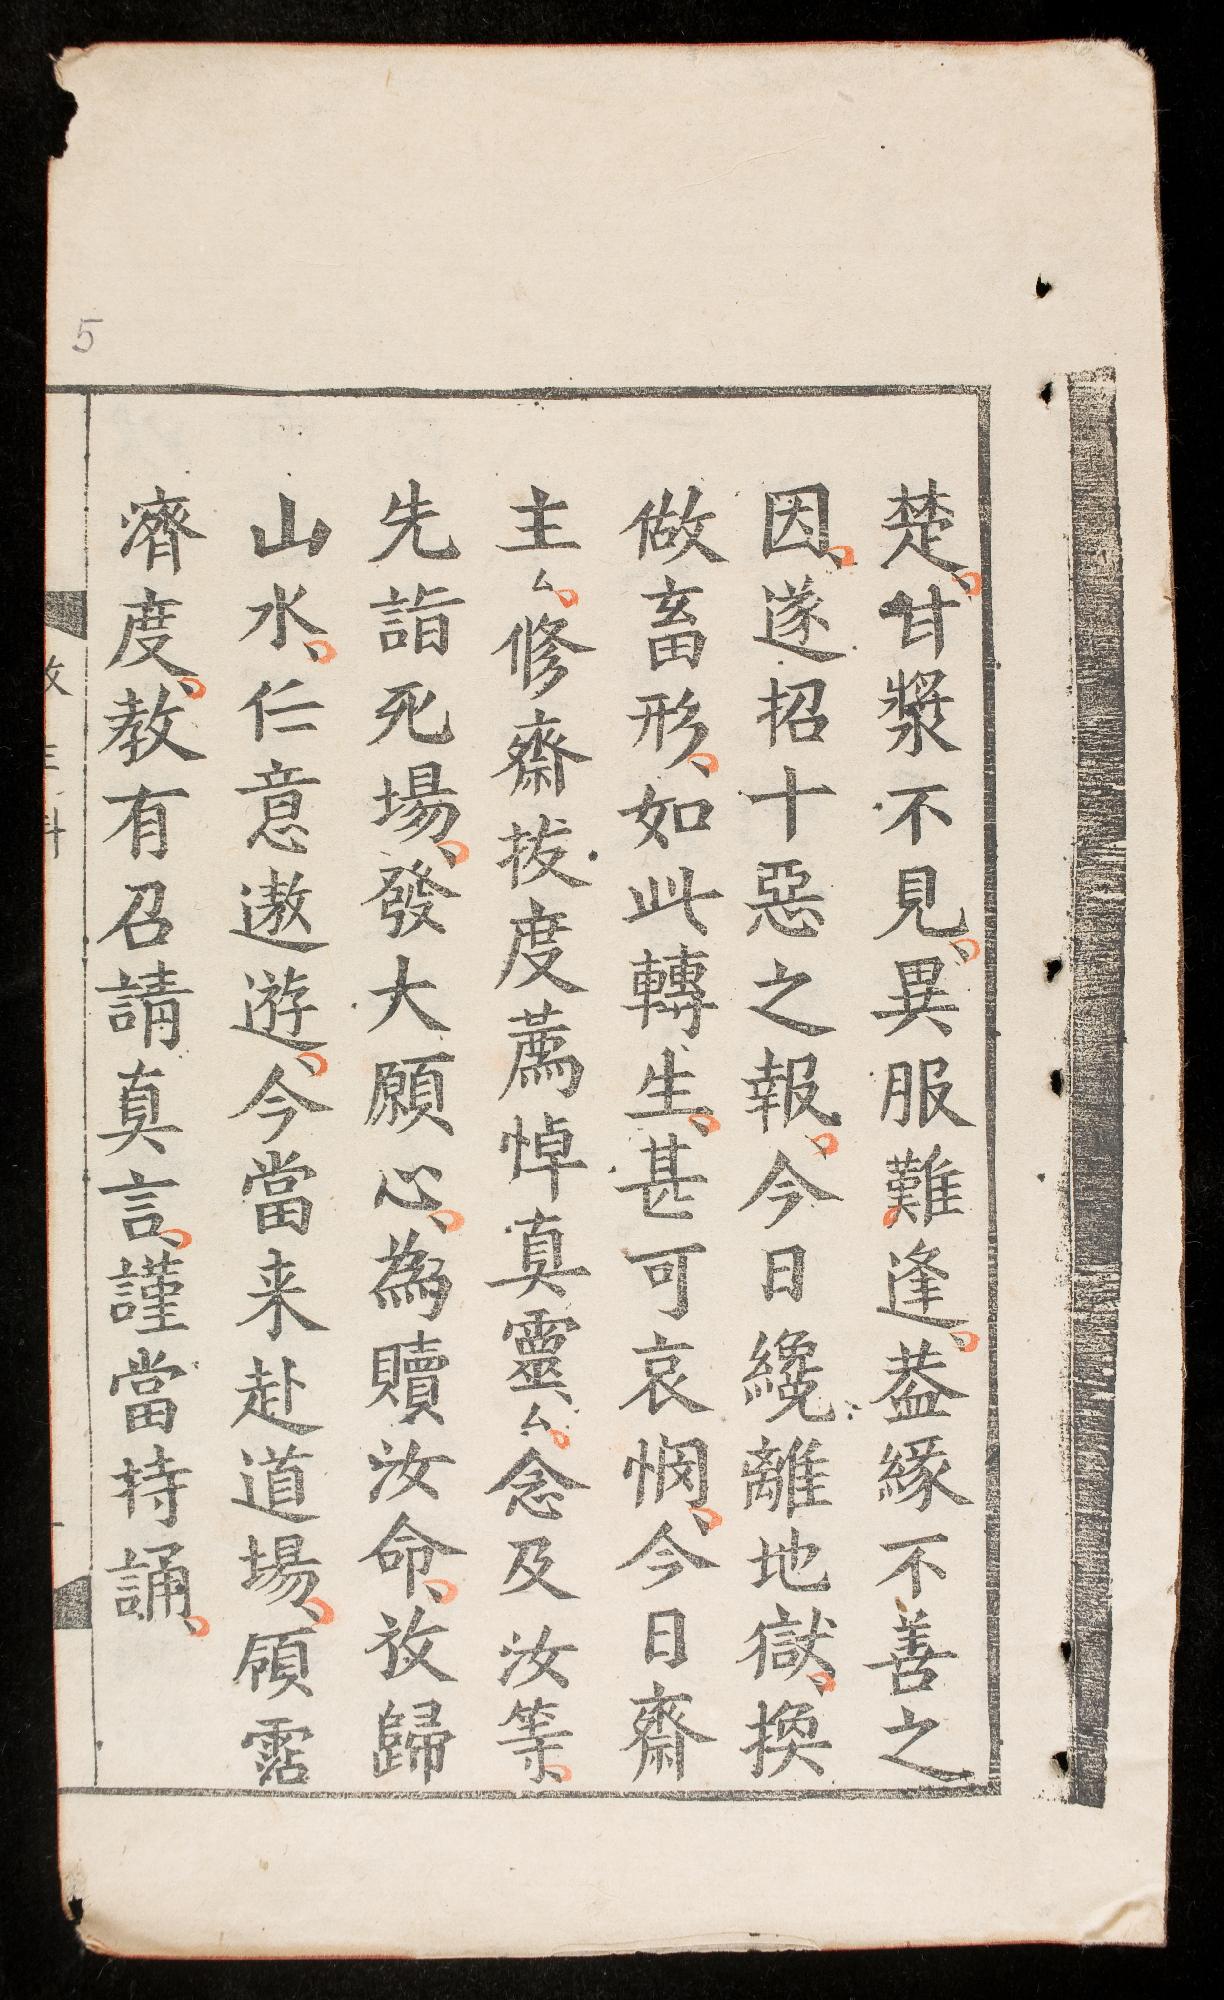 楚、甘漿不見、異服難逢、葢緣不善之
因、遂招十惡之報、今日纔離地獄、換
做畜形、如此轉生、甚可哀悯、今日齋
主厶、修齋拔度薦悼真靈厶、念及汝等、
先詣死場、發大願心、為贖汝命、放歸
山水、任意遨遊、今當来赴道場、願霑
濟度、教有召請真言、謹當持誦、
5